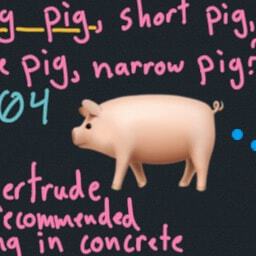 g pig, short pig,
e pig, narrow pig?
04
ertrude
recommended
ng in concrete